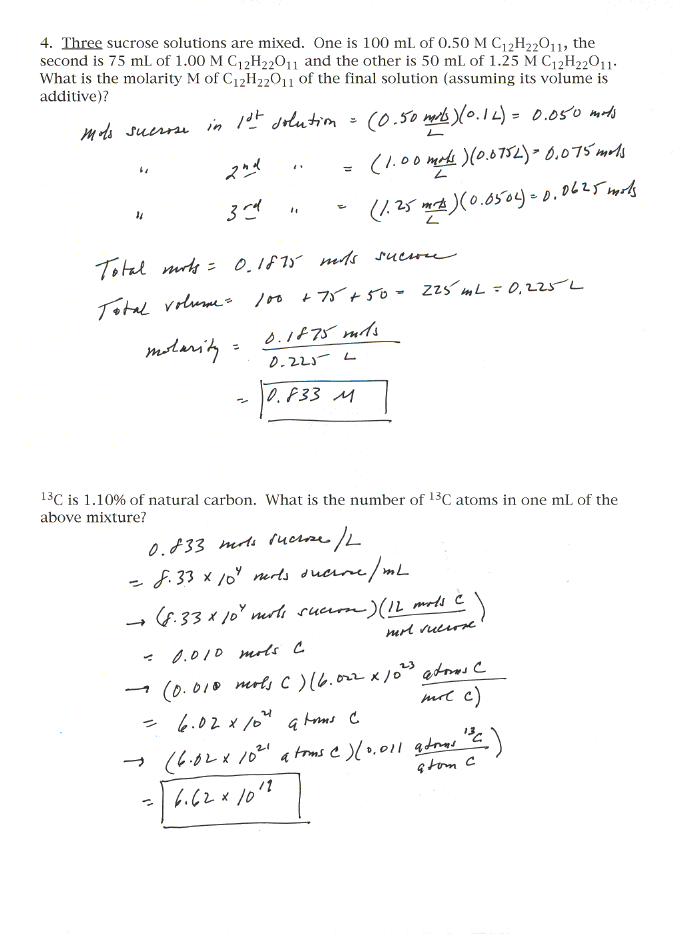 4. Three sucrose solutions are mixed. One is 100 mL of 0.50 M C₁₂H₂₂O₁₁, the
second is 75 mL of 1.00 M C₁₂H₂₂O₁₁ and the other is 50 mL of 1.25 M C₁₂H₂₂O₁₁.
What is the molarity M of C₁₂H₂₂O₁₁ of the final solution (assuming its volume is
additive)?
mols sucrose in 1st solution = (0.50 mols/L)(0.1 L) = 0.050 mols
" 2nd " = (1.00 mols/L)(0.075L) = 0.075 mols
" 3rd " = (1.25 mols/L)(0.050L) = 0.0625 mols
Total mols = 0.1875 mols sucrose
Total volume = 100 + 75 + 50 = 225 mL = 0.225 L
molarity = 0.1875 mols / 0.225 L
= 0.833 M
¹³C is 1.10% of natural carbon. What is the number of ¹³C atoms in one mL of the
above mixture?
0.833 mols sucrose/L
= 8.33 x 10⁴ mols sucrose/mL
→ (8.33 x 10⁴ mols sucrose)(12 mols C / mol sucrose)
= 0.010 mols C
→ (0.010 mols C)(6.022 x 10²³ atoms C / mol C)
= 6.02 x 10²¹ atoms C
→ (6.02 x 10²¹ atoms C)(0.011 atoms ¹³C / atom C)
= 6.62 x 10¹⁹